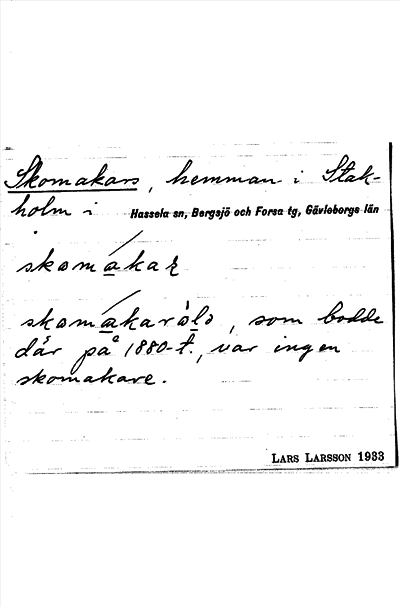 Skomakars, hemman i Stak-
holm i Hassela sn, Bergsjö och Forsa tg, Gävleborgs län
skomakaʀ
skomakaròlə, som bodde
där på 1880-t., var ingen
skomakare.
LARS LARSSON 1933